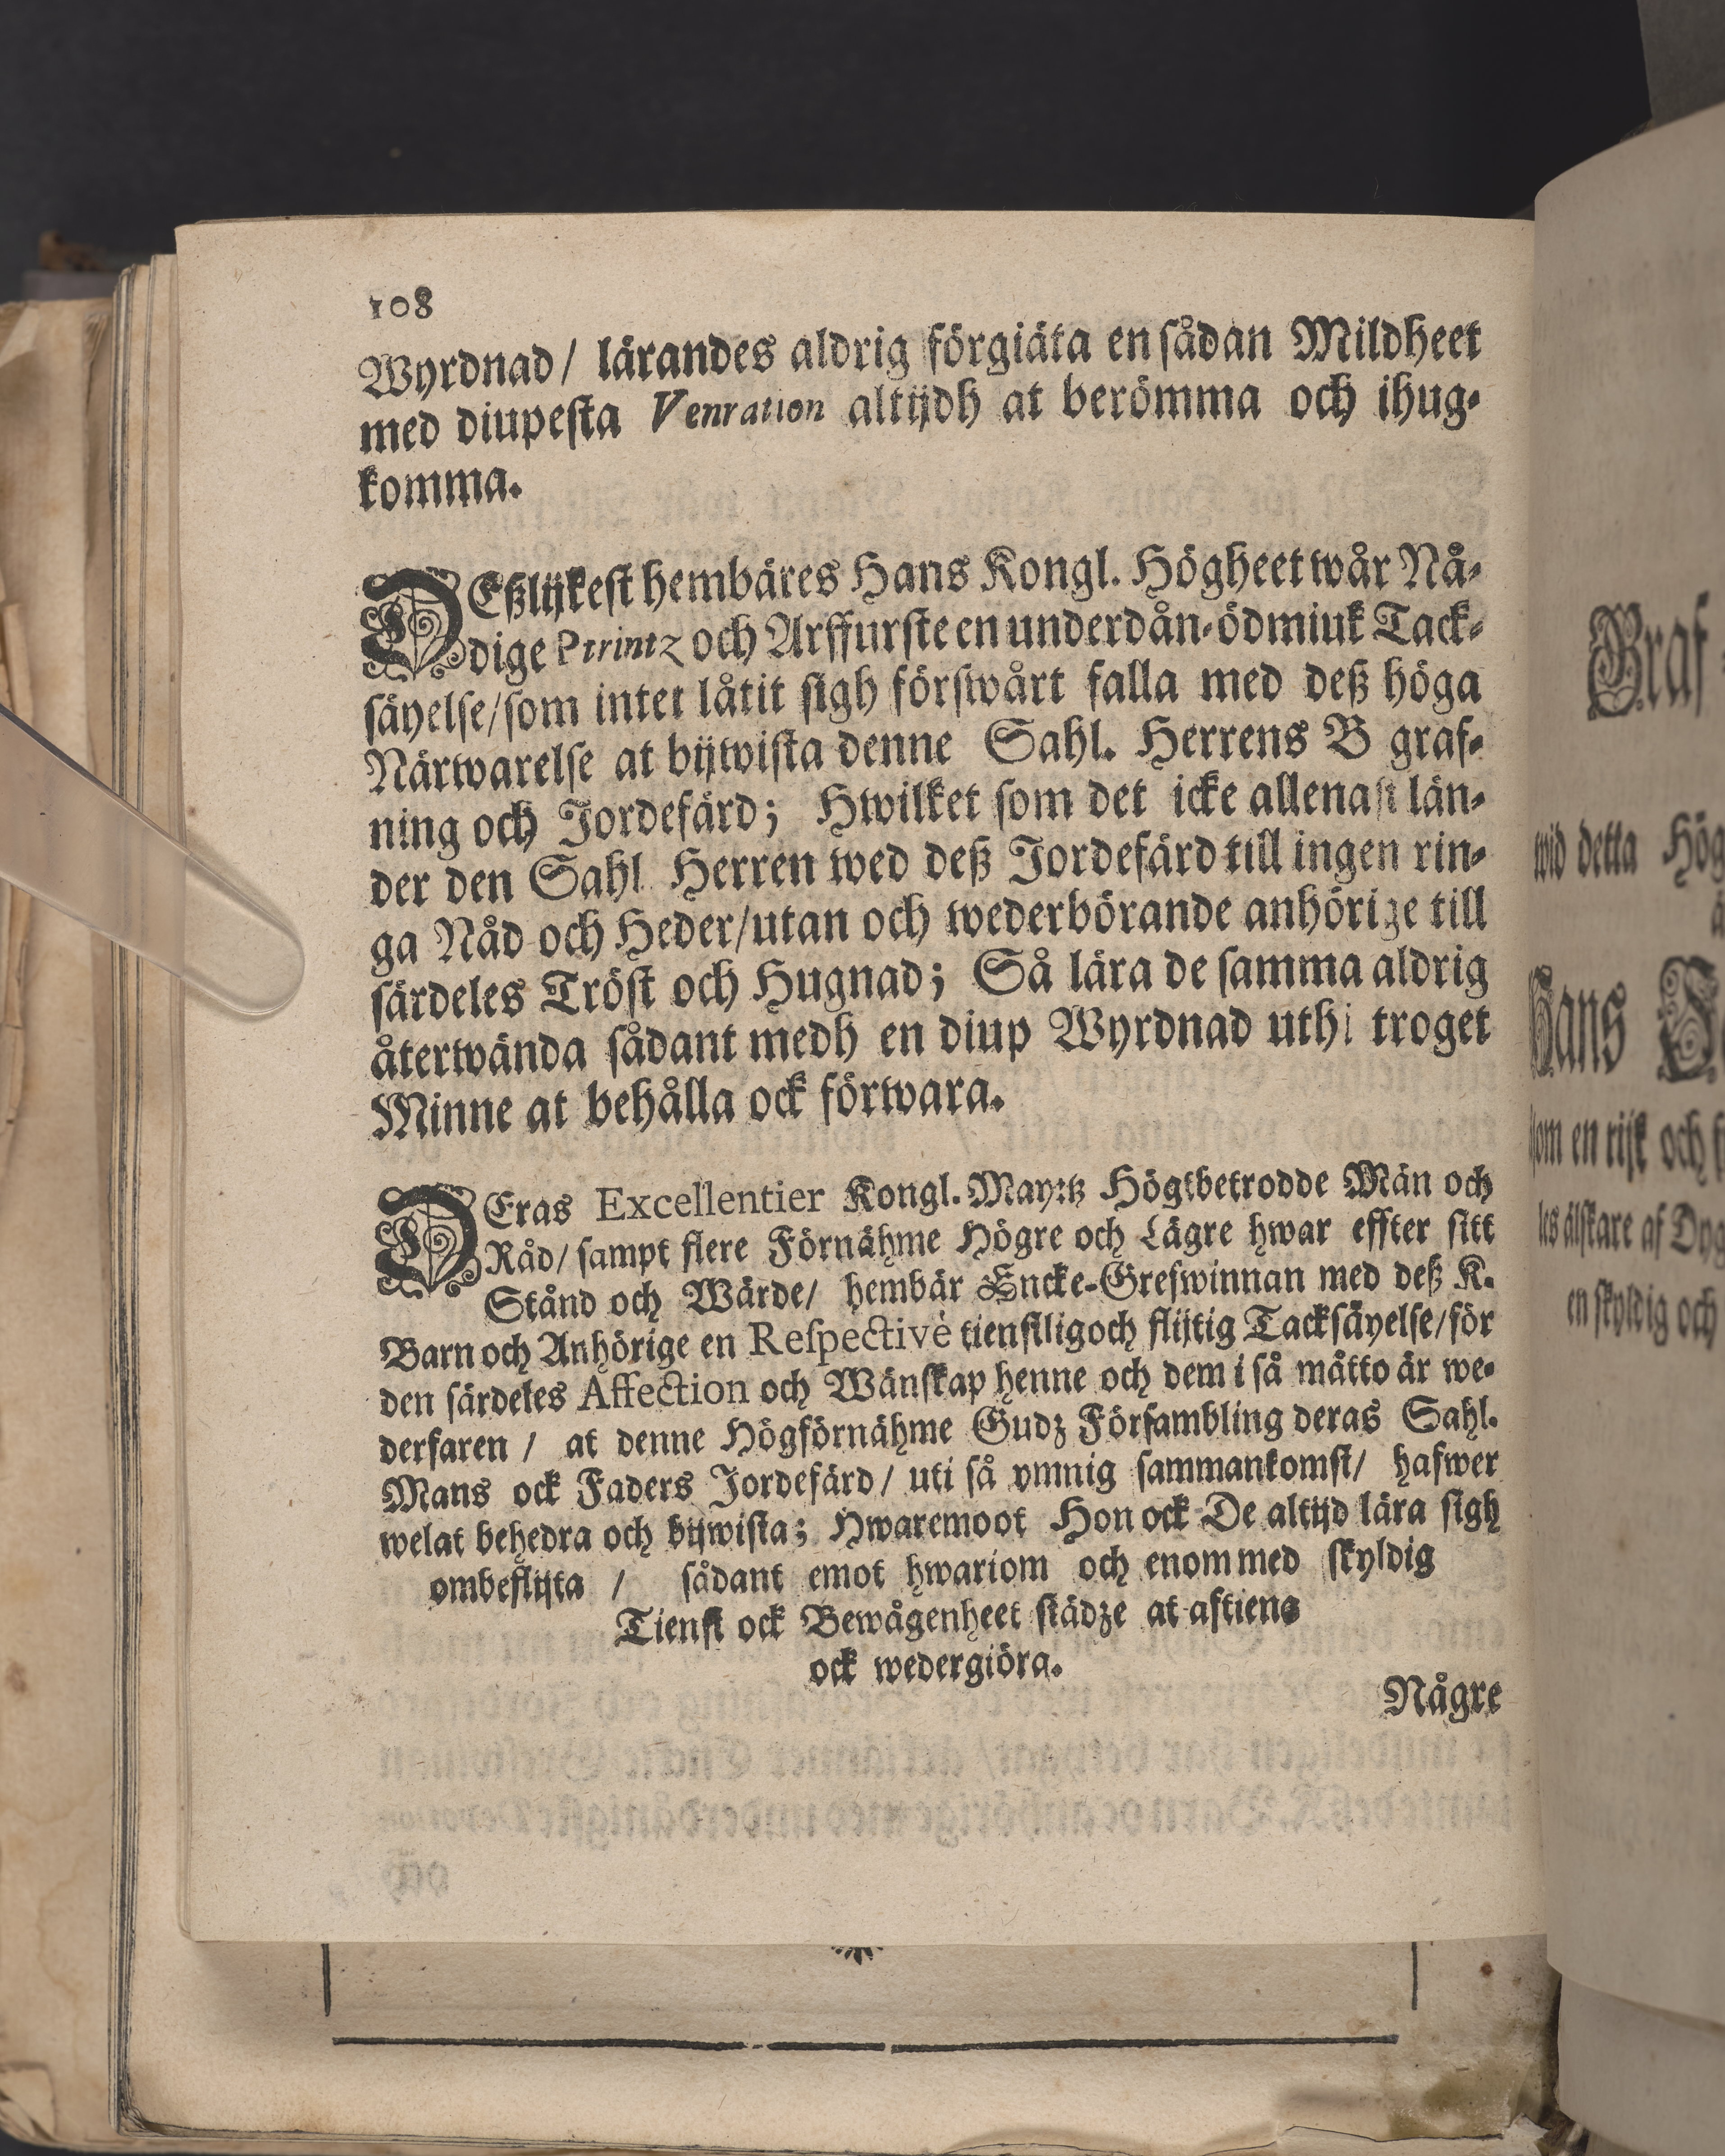 108
Wyrdnad/ lärandes aldrig förgiäta en sådan Mildheet
med diupesta Venration altijdh at berömma och ihug-
komma.
DEßlijkest hembäres Hans Kongl. Högheet wår Nå-
dige Ptrintz och Arffurste en underdån-ödmiuk Tack-
säyelse/som intet låtit sigh förswårt falla med deß höga
Närwarelse at bijwista denne Sahl. Herrens B graf-
ning och Jordefärd; Hwilket som det icke allenast län-
der den Sahl. Herren wed deß Jordefärd till ingen rin-
ga Nåd och Heder/utan och wederbörande anhörige till
särdeles Tröst och Hugnad; Så lära de samma aldrig
återwända sådant medh en diup Wyrdnad uthi troget
Minne at behålla ock förwara.
DEras Excellentier Kongl. May:tz Högtbetrodde Män och
Råd/ sampt flere Förnähme Högre och Lägre hwar effter sitt
Stånd och Wärde/ hembär Encke-Grefwinnan med deß K.
Barn och Anhörige en Respectivè tienstligoch flijtig Tacksäyelse/för
den särdeles Affection och Wänskap henne och dem i så måtto är we-
derfaren / at denne Högförnähme Gudz Försambling deras Sahl.
Mans ock Faders Jordefärd/ uti så ymnig sammankomst/ hafwer
welat behedra och bijwista; Hwaremoot Hon ock De altijd lära sigh
ombeflijta / sådant emot hwariom och enom med skyldig
Tienst ock Bewågenheet städze at aftiena
ock wedergiöra.
Någre
Graf
wid detta Hög
Hans
som en rijk och
les älskare af Dyg
en skyldig och